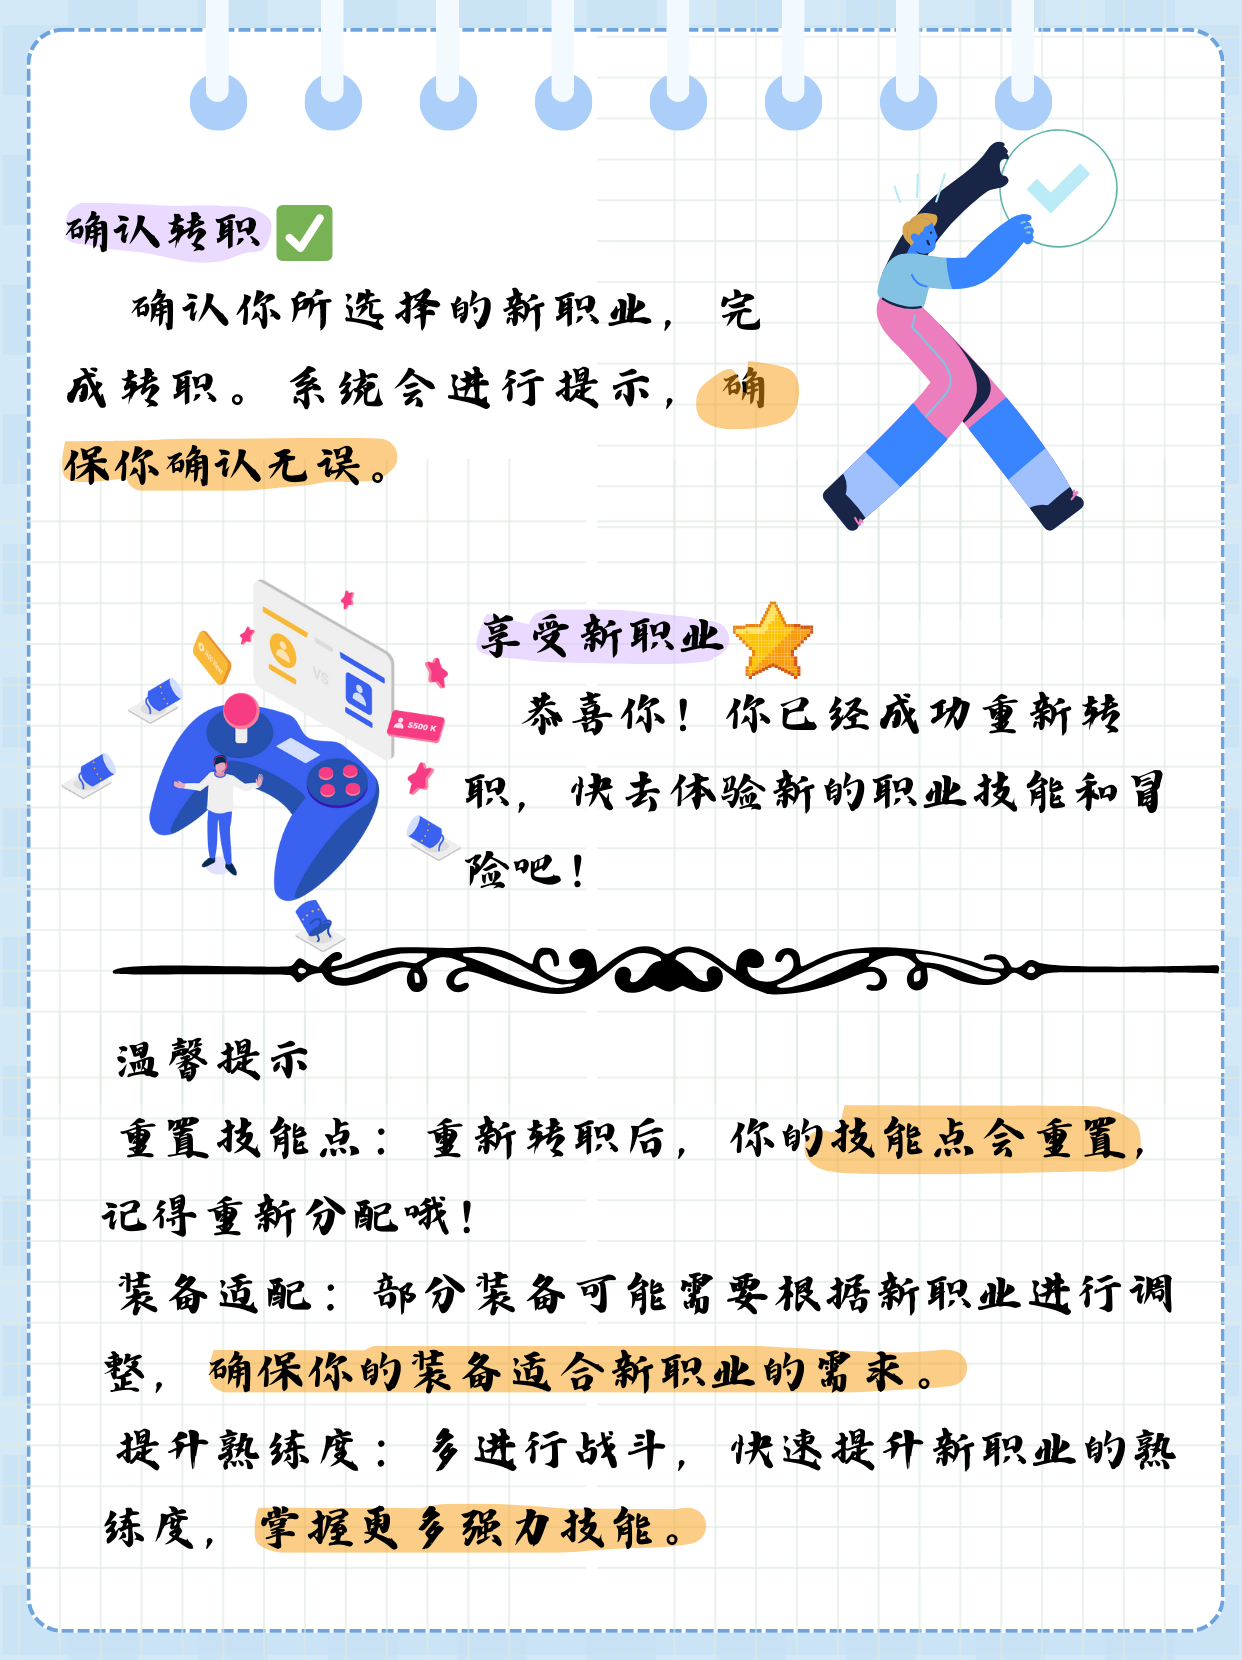 确认转职
确认你所选择的新职业，完
成转职。系统会进行提示，确
保你确认无误。
VS
5500 K
享受新职业
恭喜你！你已经成功重新转
职，快去体验新的职业技能和冒
险吧！
温馨提示
重置技能点：重新转职后，你的技能点会重置，
记得重新分配哦！
装备适配：部分装备可能需要根据新职业进行调
整，确保你的装备适合新职业的需求。
提升熟练度：多进行战斗，快速提升新职业的熟
练度，掌握更多强力技能。